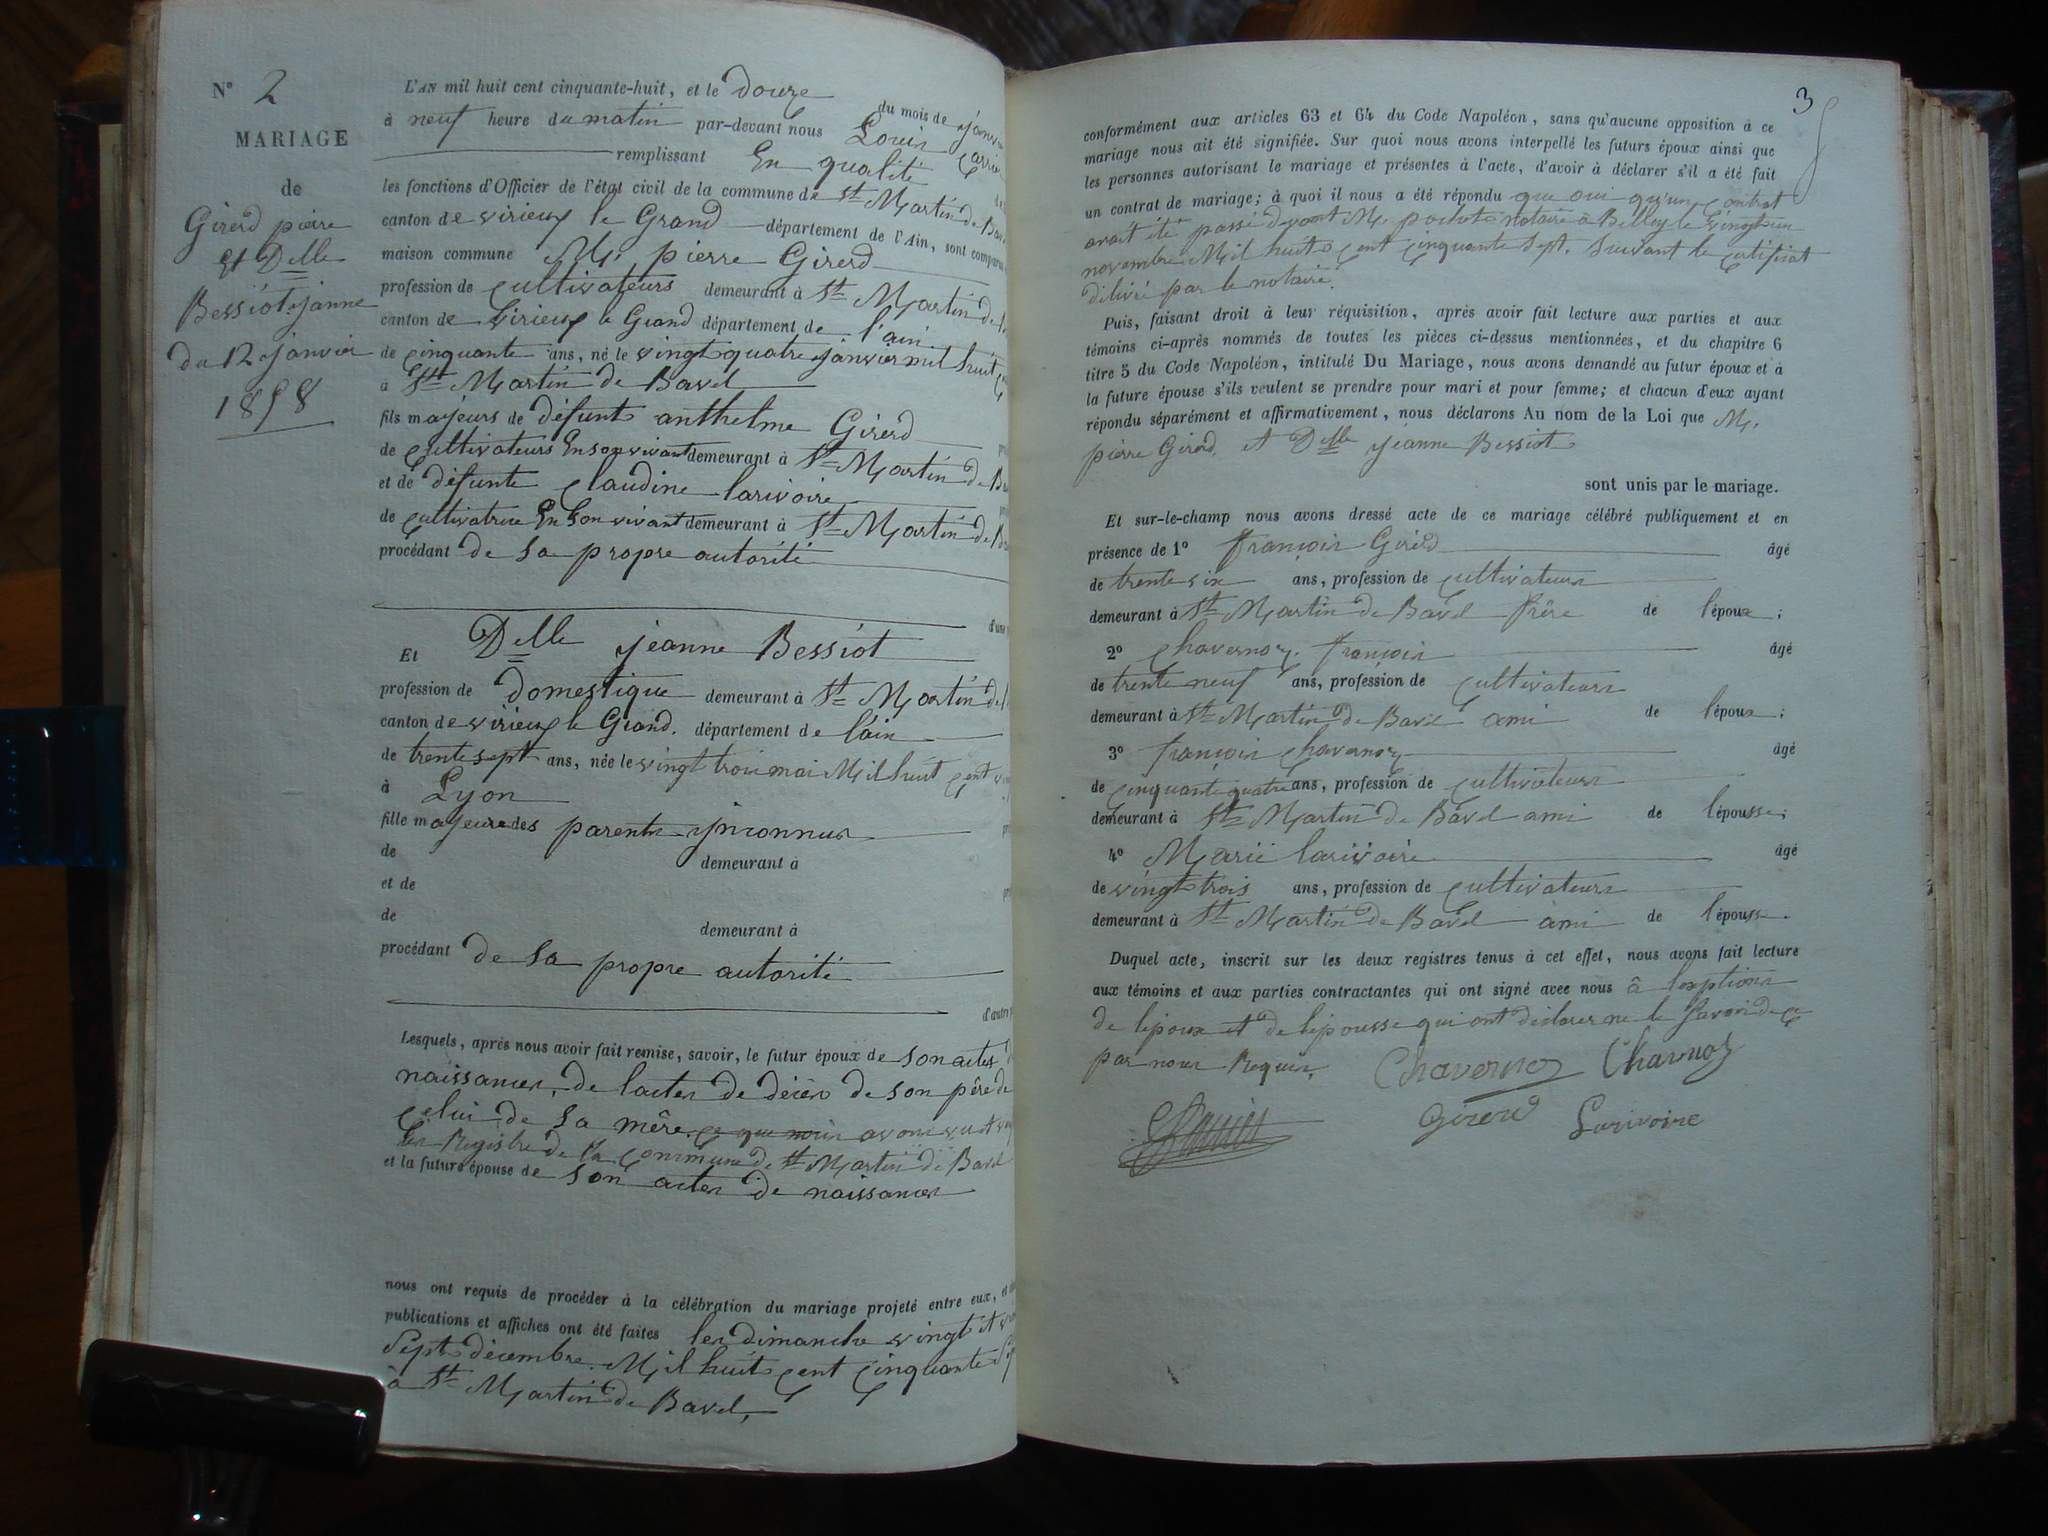 N° 2
MARIAGE
de
Girerd pierre
Et Delle
Bessiot jeanne
du 12 janvier
1858
L'AN mil huit cent cinquante-huit, et le douze du mois de janvier
à neuf heure du matin par-devant nous Louis
remplissant En qualité
les fonctions d'Officier de l'état civil de la commune de St Martin de
canton de virieux le Grand département de l'Ain, sont
maison commune M. pierre Girerd
profession de cultivateurs demeurant à St Martin de
canton de virieux le Grand département de l'ain
de cinquante ans, né le vingt quatre janvier mil huit
à St Martin de Bavel
fils majeurs de défunt anthelme Girerd
de cultivateurs En son vivant demeurant à St Martin de
et de défunte claudine larivoire
de cultivatrice En son vivant demeurant à St Martin de
procédant de sa propre autorité
d'une
Et Delle jeanne Bessiot
profession de domestique demeurant à St Martin de
canton de virieux le Grand. département de l'ain
de trente sept ans, née le vingt trois mai Mil huit cent
à Lyon
fille majeure des parents ynconnus
de demeurant à
et de
de demeurant à
procédant de sa propre autorité
Lesquels, après nous avoir fait remise, savoir, le futur époux de son actes
naissances, de lactes de décès de son père de
celui de sa mère ce que nous avons vu
Registre de la commune de St Martin de Bavel
et la future épouse de son actes de naissances
nous ont requis de procéder à la célébration du mariage projeté entre eux,
publications et affiches ont été faites les dimanche vingt et
Sept décembre Mil huit cent cinquante
à St Martin de Bavel,
3
conformément aux articles 63 et 64 du Code Napoléon, sans qu'aucune opposition à ce
mariage nous ait été signifiée. Sur quoi nous avons interpellé les futurs époux ainsi que
les personnes autorisant le mariage et présentes à l'acte, d'avoir à déclarer s'il a été fait
un contrat de mariage; à quoi il nous a été répondu que oui qu'un contrat
avait été passé devant M. notaire à Belley le vingt un
novembre Mil huit cent cinquante sept. Suivant le certifirat
délivré par le notaire.
Puis, faisant droit à leur réquisition, après avoir fait lecture aux parties et aux
témoins ci-après nommés de toutes les pièces ci-dessus mentionnées, et du chapitre 6
titre 5 du Code Napoléon, intitulé Du Mariage, nous avons demandé au futur époux et à
la future épouse s'ils veulent se prendre pour mari et pour femme; et chacun d'eux ayant
répondu séparément et affirmativement, nous déclarons Au nom de la Loi que M.
pierre Girerd. et Delle jeanne Bessiot
sont unis par le mariage.
Et sur-le-champ nous avons dressé acte de ce mariage célébré publiquement et en
présence de 1° françois Girerd âgé
de trente six ans, profession de cultivateurs
demeurant à St Martin de Bavel frère de lépoux;
2° Chavernoz. françois âgé
de trente neuf ans, profession de cultivateurs
demeurant à St Martin de Bavel ami de lépoux;
3° françois Chavernoz âgé
de cinquante quatre ans, profession de cultivateurs
demeurant à St Martin de Bavel ami de lépousse;
4° Marie larivoire âgé
de vingt trois ans, profession de cultivateurs
demeurant à St Martin de Bavel ami de lépousse.
Duquel acte, inscrit sur les deux registres tenus à cet effet, nous avons fait lecture
aux témoins et aux parties contractantes qui ont signé avec nous à lexption
de lépoux et de lépousse qui ont déclarer ne le savoir de ce
par nous Requis.
Chavernoz Charnoz
Girerd Larivoire